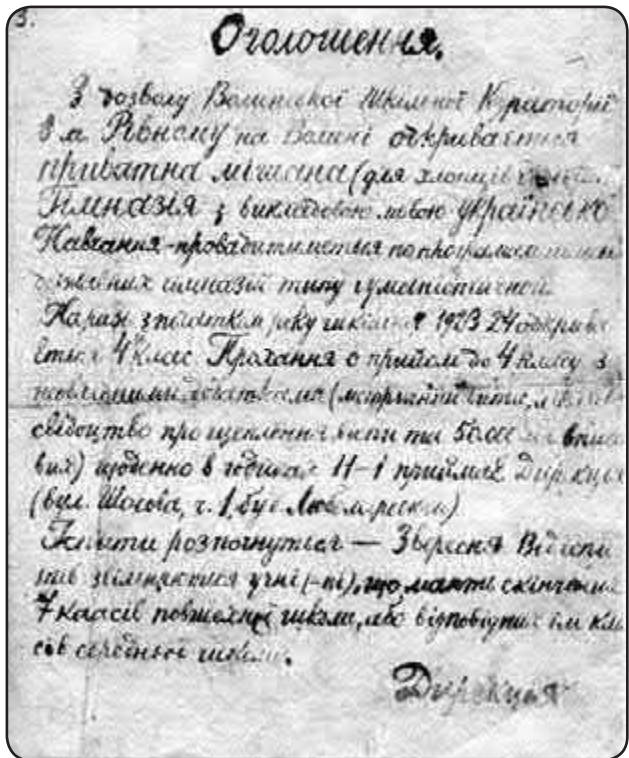 3.
Оголошення.
З дозволу Волинської Шкільної Кураторії
в м. Рівному на Волині открива ється
приватна мішана (для хлопців
Гімназія з викладовою мовою українсько
Навчання провадитиметься по програмам
державних гімназій типу гуманістичной.
Наразі з початком року 1923 24 одкрива
ється 4 клас Прохання о прийом до 4 класу з
(метричний витяг,
свідоцтво про щеплення віспи та 5000 мк
вих) щоденно в годинах 11-1 приймає Дирекція
(вул. Шосова, ч. 1, буд.
Іспити розпочнуться — 3 вересня Від іспи
тів звільняються учні (-ці), що мають скінчених
7 класів повшехної школи, або відповідних їм кля
сів середньої школи.
Дирекция